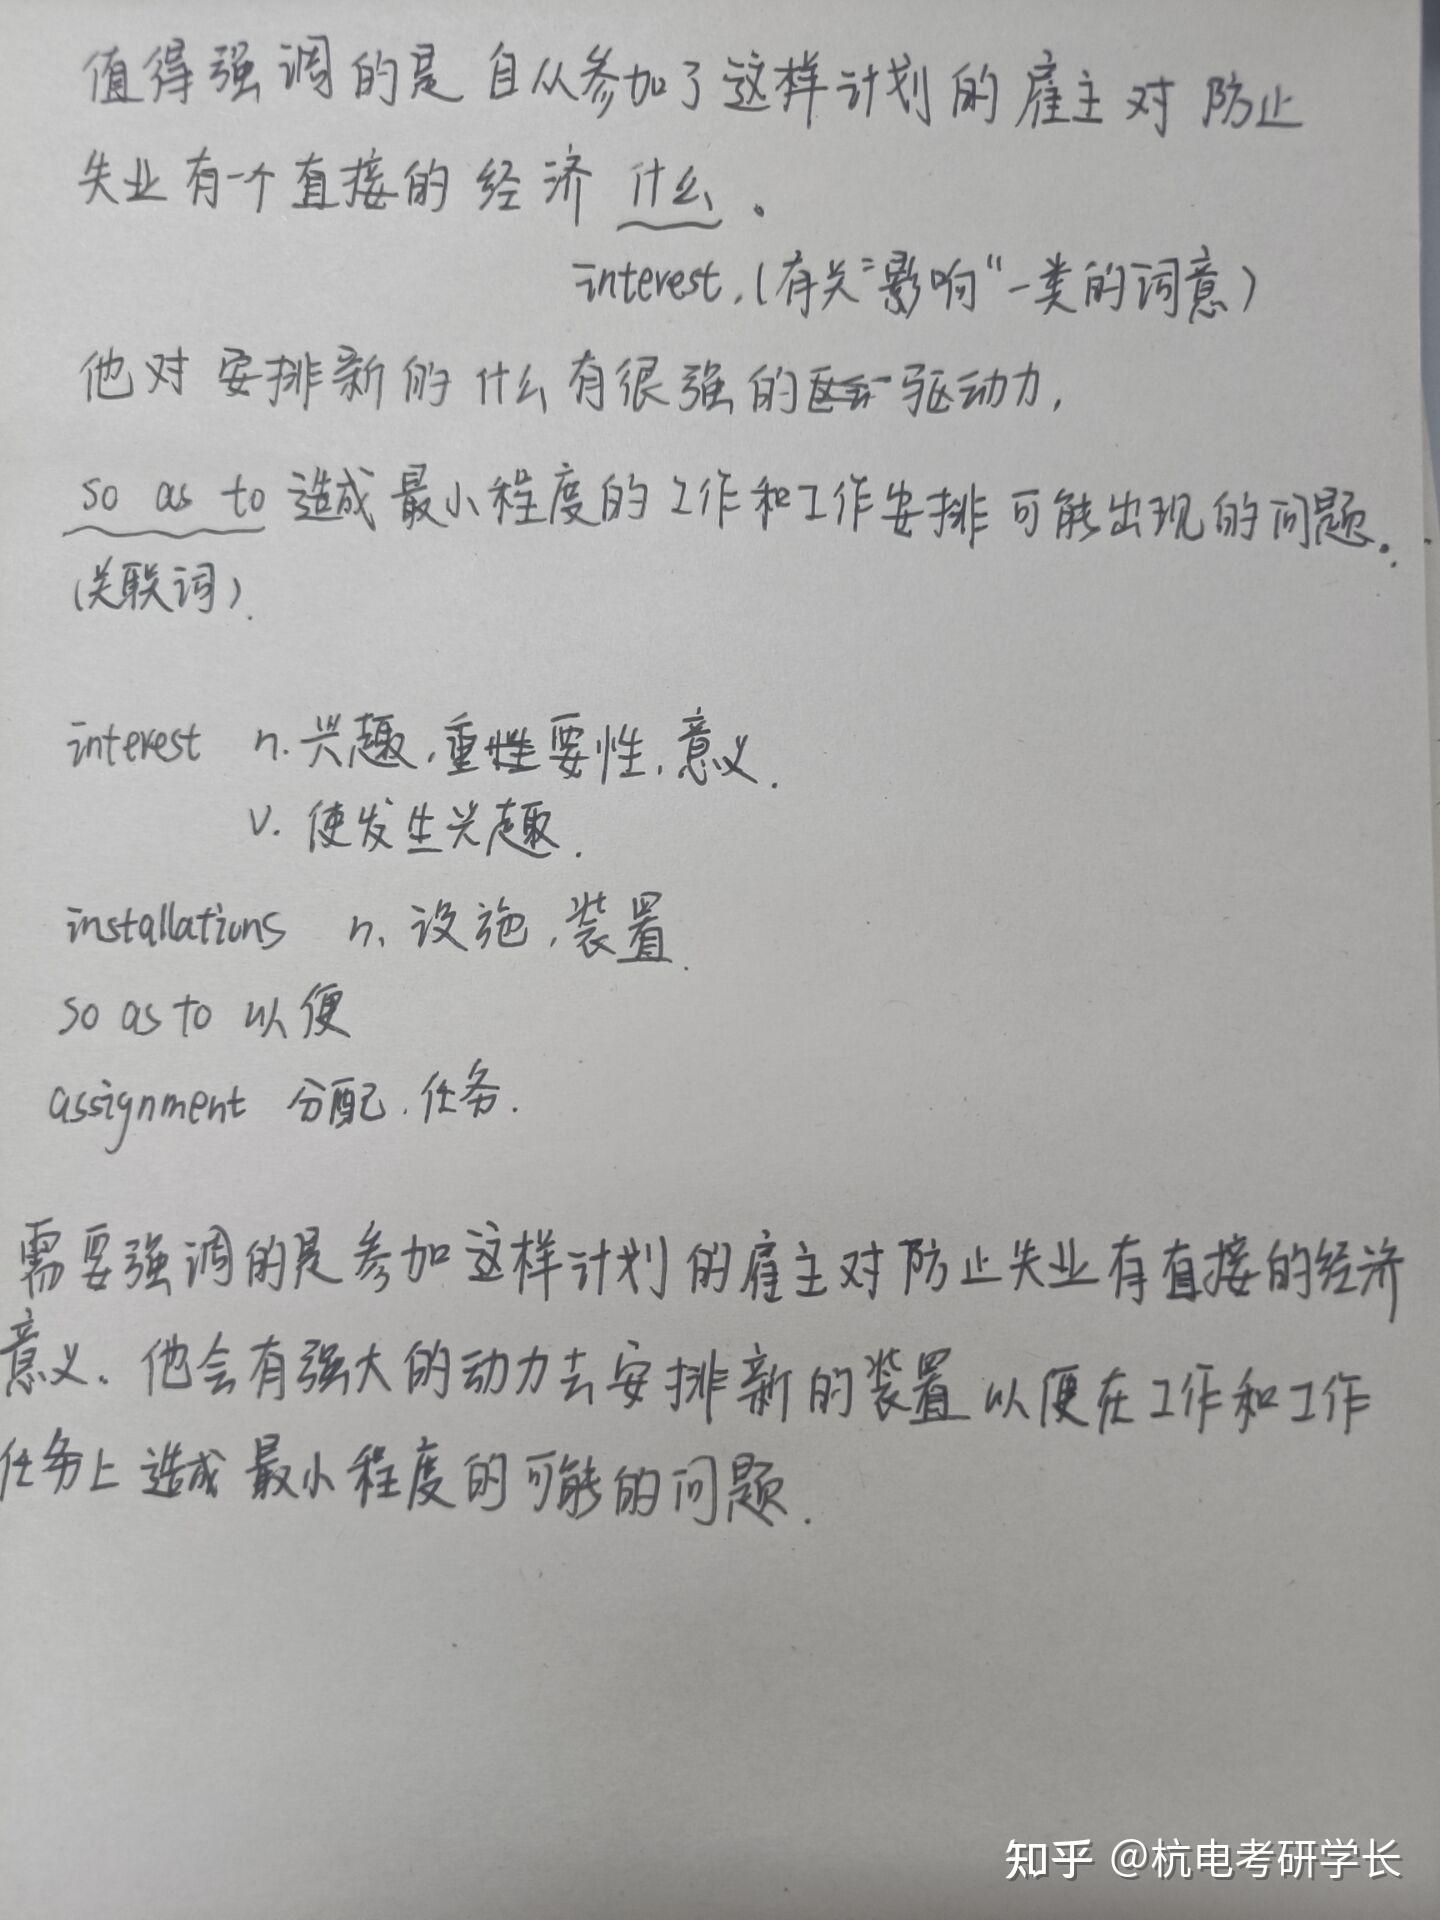 值得强调的是自从参加了这样计划的雇主对防止
失业有一个直接的经济什么。
interest.(有关"影响"一类的词意)
他对安排新的什么有很强的驱动力,
so as to 造成最小程度的工作和工作安排可能出现的问题.
(关联词).
interest n.兴趣,重要性,意义.
v. 使发生兴趣.
installations n. 设施,装置.
so as to 以便
assignment 分配.任务.
需要强调的是参加这样计划的雇主对防止失业有直接的经济
意义.他会有强大的动力去安排新的装置以便在工作和工作
任务上造成最小程度的可能的问题.
知乎 @杭电考研学长